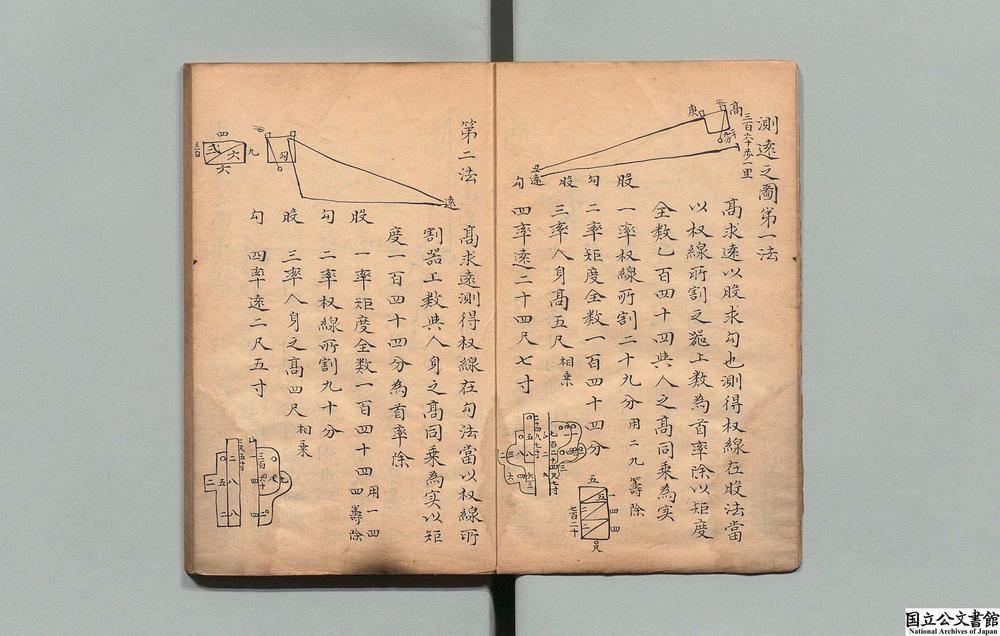 測遠之圖第一法
高
三百六十步一里
庚
丑遠
高求遠以股求勾也測得权線在股法當
以权線所割之器上数為首率除以矩度
全数乙百四十四與人之高同乗為实
股 一率权線所割二十九分 用二九籌除
勾 二率矩度全数一百四十四分
股 三率人身高五尺 相乗
勾 四率遠二十四尺七寸
五
七百二十
尺
第二法
遠
勾
四
九
六
高求遠測得权線在勾法當以权線所
割器上数與人身之高同乗為实以矩
度一百四十四分為首率除
股 一率矩度全数一百四十四 用一四四籌除
勾 二率权線所割九十分
股 三率人身之高四尺 相乗
勾 四率遠二尺五寸
国立公文書館
National Archives of Japan